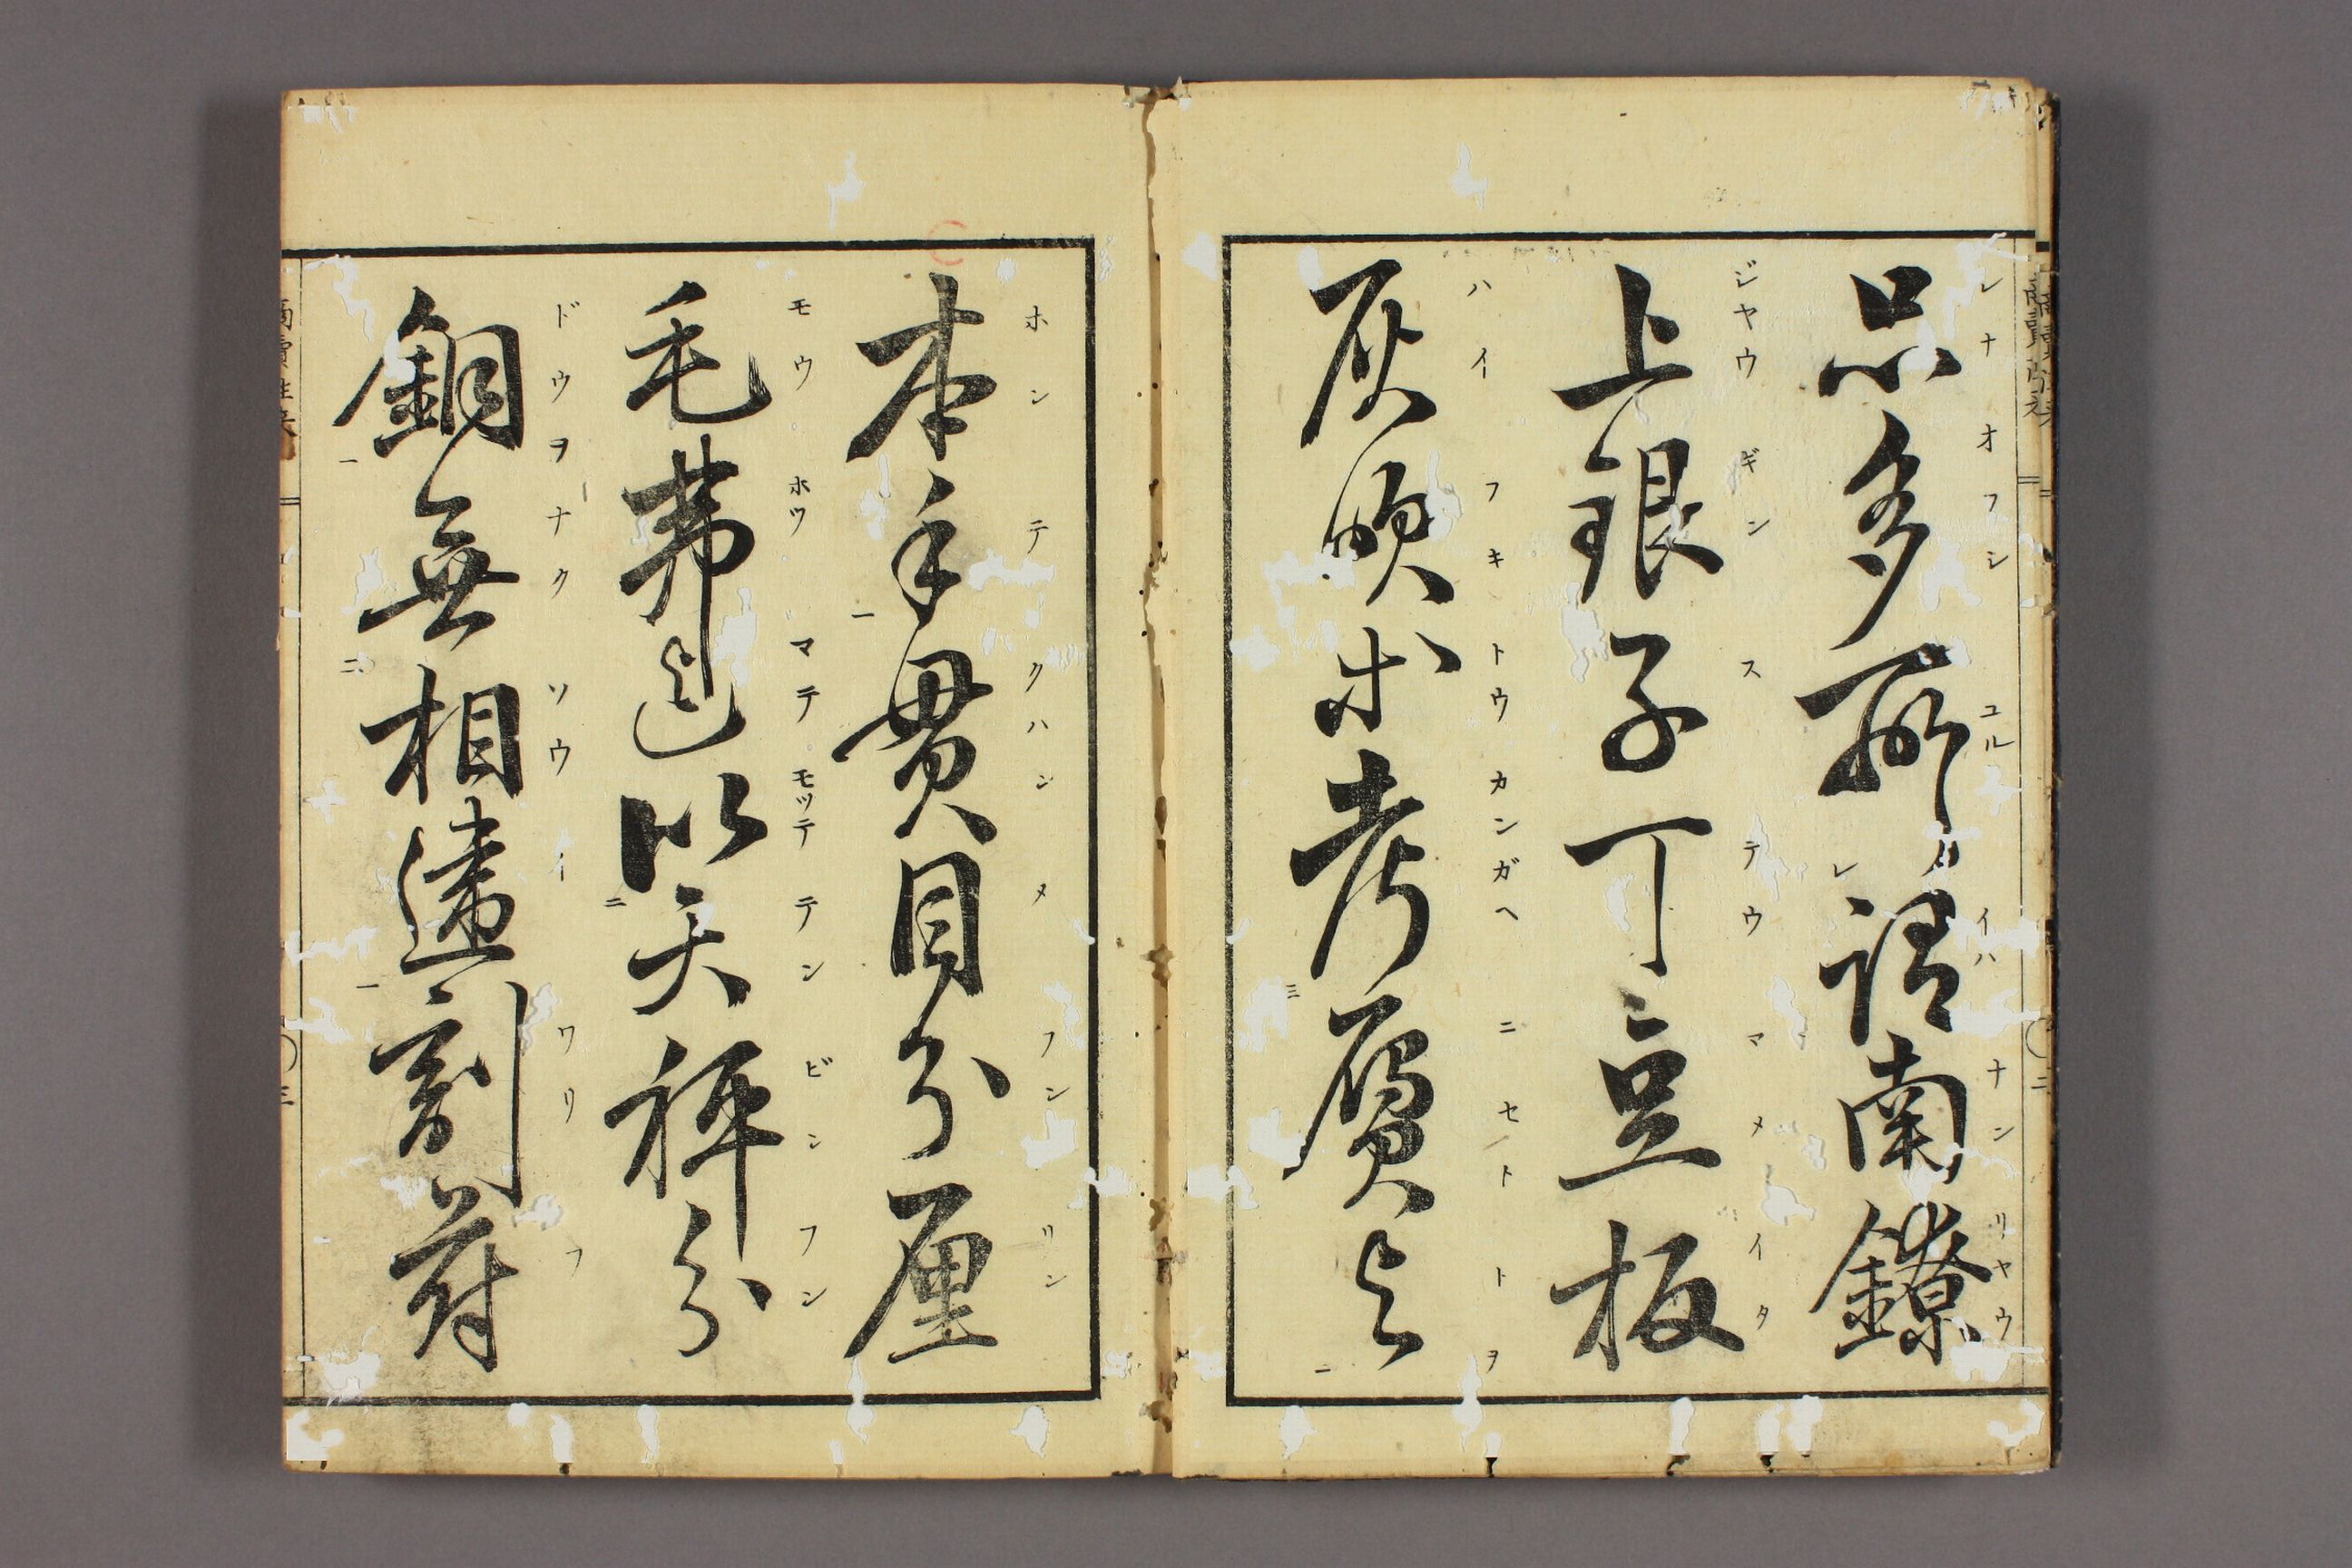 品多所謂南鐐
シナオフシユルイハナンリヤウ
レ
上銀子丁豆板
ジヤウギンステウマメイタ
灰吹等考贋与
ハイフキトウカンガヘニセトトヲ
三
二
本手貫目分厘
ホンテクハンメフンリン
一
毛弗迄以天秤分
モウホツマテモツテテンビンフン
二
銅無相違割符
ドウヲナクソウイワリフ
一
二
一
三